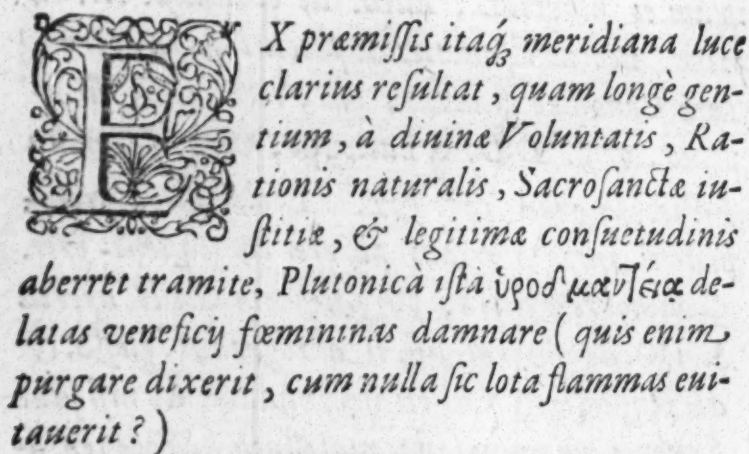 EX præmiſſis itaq́; meridiana luce
clarius reſultat, quam longè gen-
tium, à diuinæ Voluntatis, Ra-
tionis naturalis, Sacroſanctæ iu-
ſtitiæ, & legitimæ conſuetudinis
aberret tramite, Plutonicà iſtà ὑροδμαντείᾳ de-
latas veneficij fœmininas damnare (quis enim
purgare dixerit, cum nulla ſic lota flammas eui-
tauerit?)